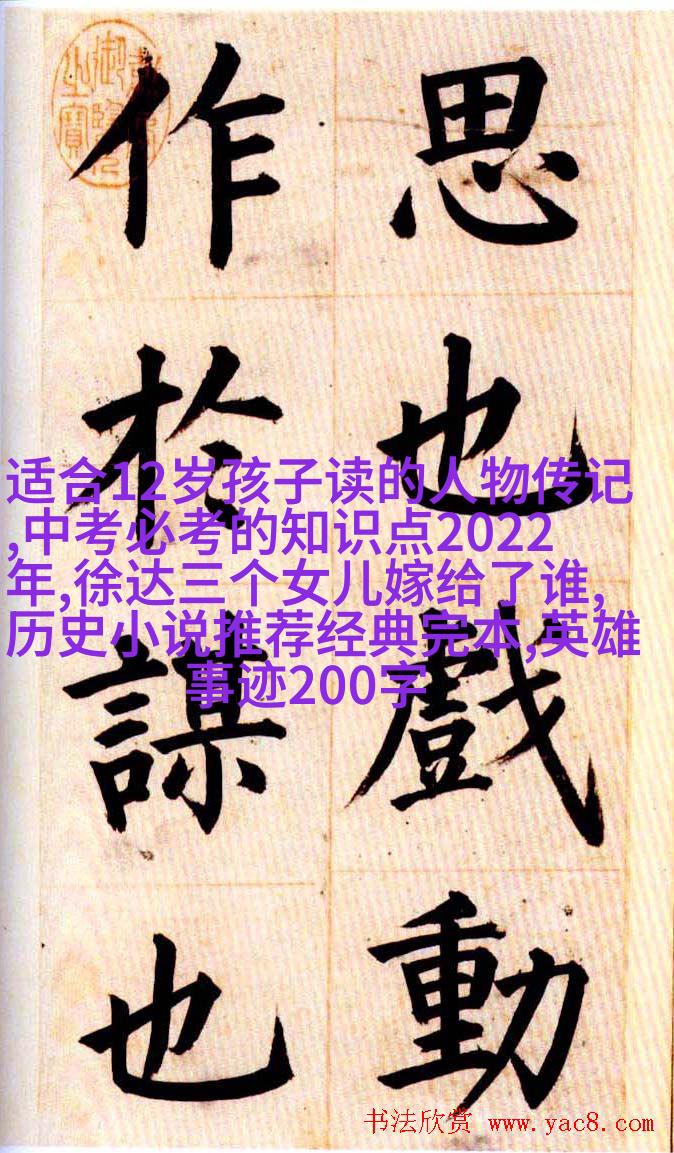 思也戲動
作於謀也
适合12岁孩子读的人物传记
,中考必考的知识点2022
年,徐达三个女儿嫁给了谁,
历史小说推荐经典完本,英雄
事迹200字
书法欣赏 www.yac8.com